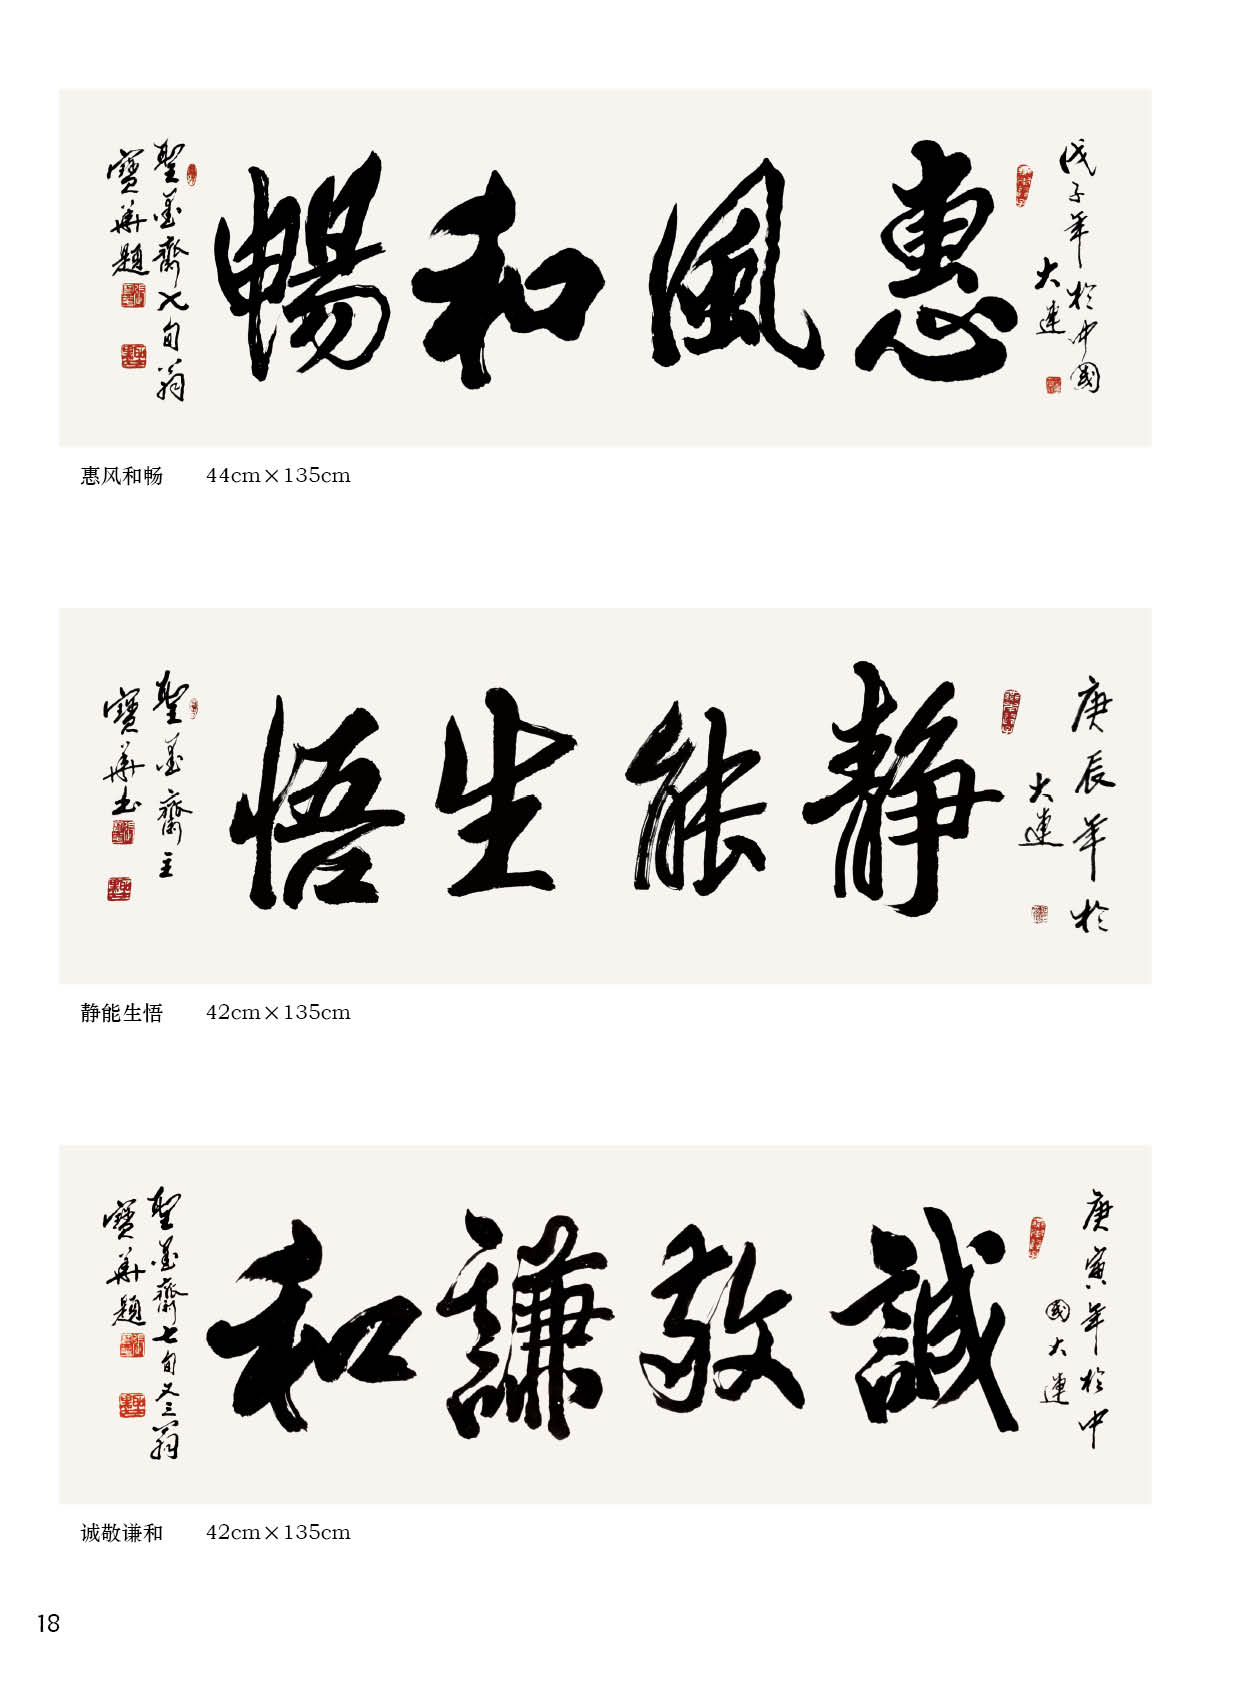 戊子年於中國
大連
惠風和暢
聖墨齋七旬翁
寶華題
惠风和畅 44cm×135cm
庚辰年於
大連
静能生悟
聖墨齋主
寶華书
静能生悟 42cm×135cm
庚寅年於中
國大連
誠敬謙和
聖墨齋七旬又三翁
寶華題
诚敬谦和 42cm×135cm
18